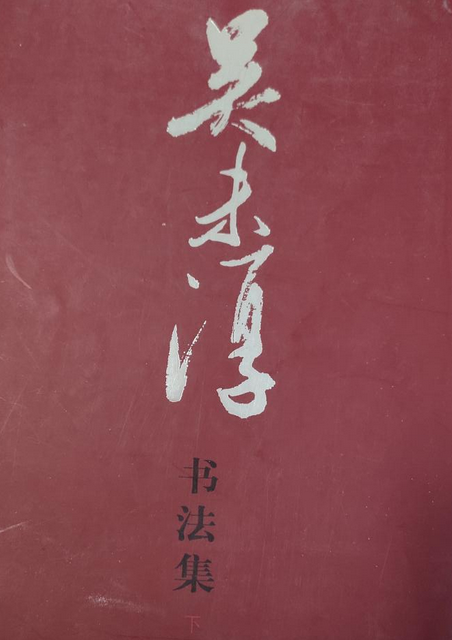 吴未淳
书法集
下